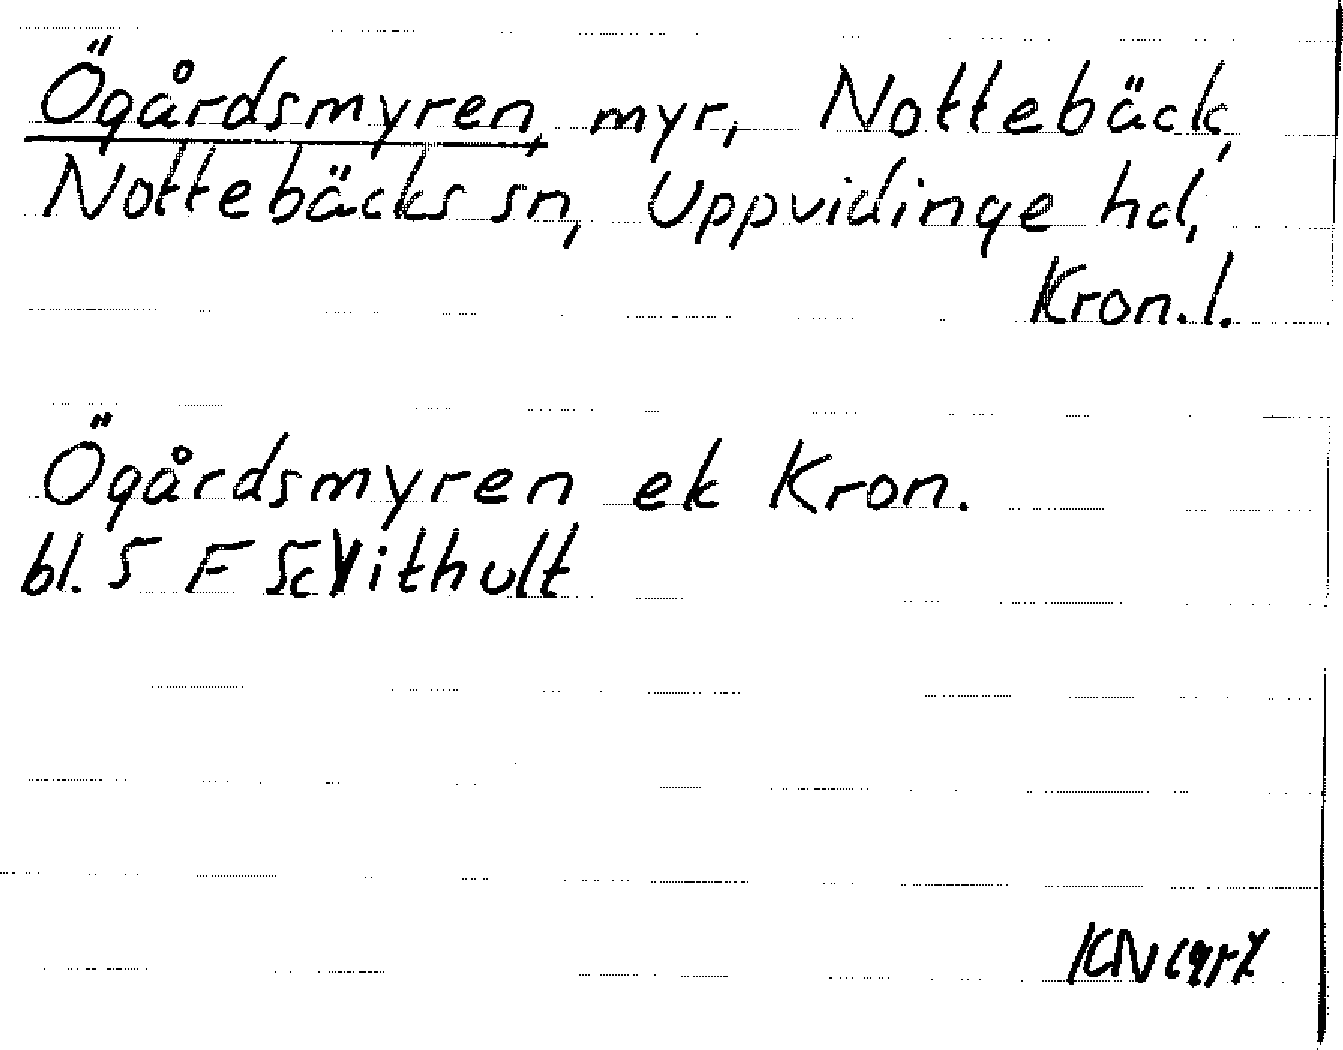 Ögårdsmyren, myr, Nottebäck,
Nottebäcks sn, Uppvidinge hd,
Kron. l.
Ögårdsmyren ek Kron.
bl. 5 F Vithult